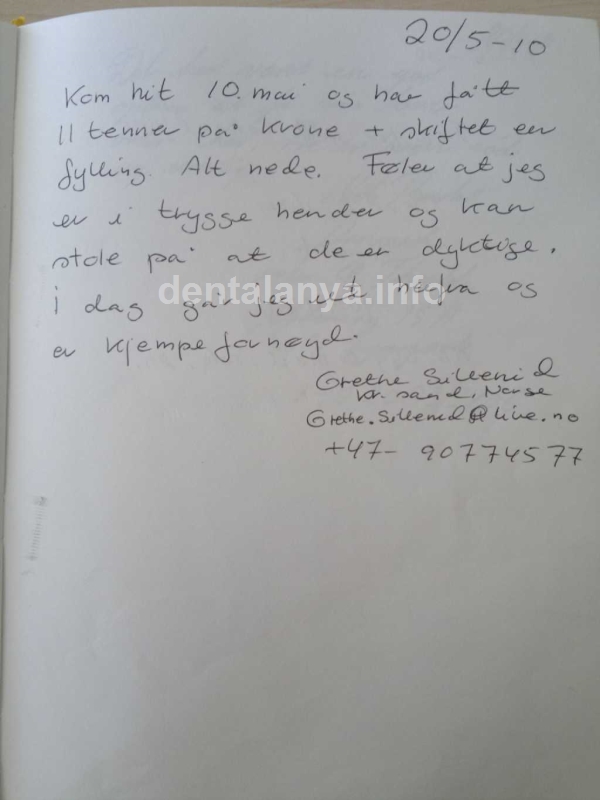 20/5-10
Kom hit 10. mai og har fått
11 tenner på krone + skiftet en
fylling. Alt nede. Føler at jeg
er i trygge hender og kan
stole på at de er dyktige.
dentalanya.info
i dag går jeg ut herfra og
er kjempe fornøyd.
Grethe
Kr. sand, Norge
@live.no
+47- 90774577